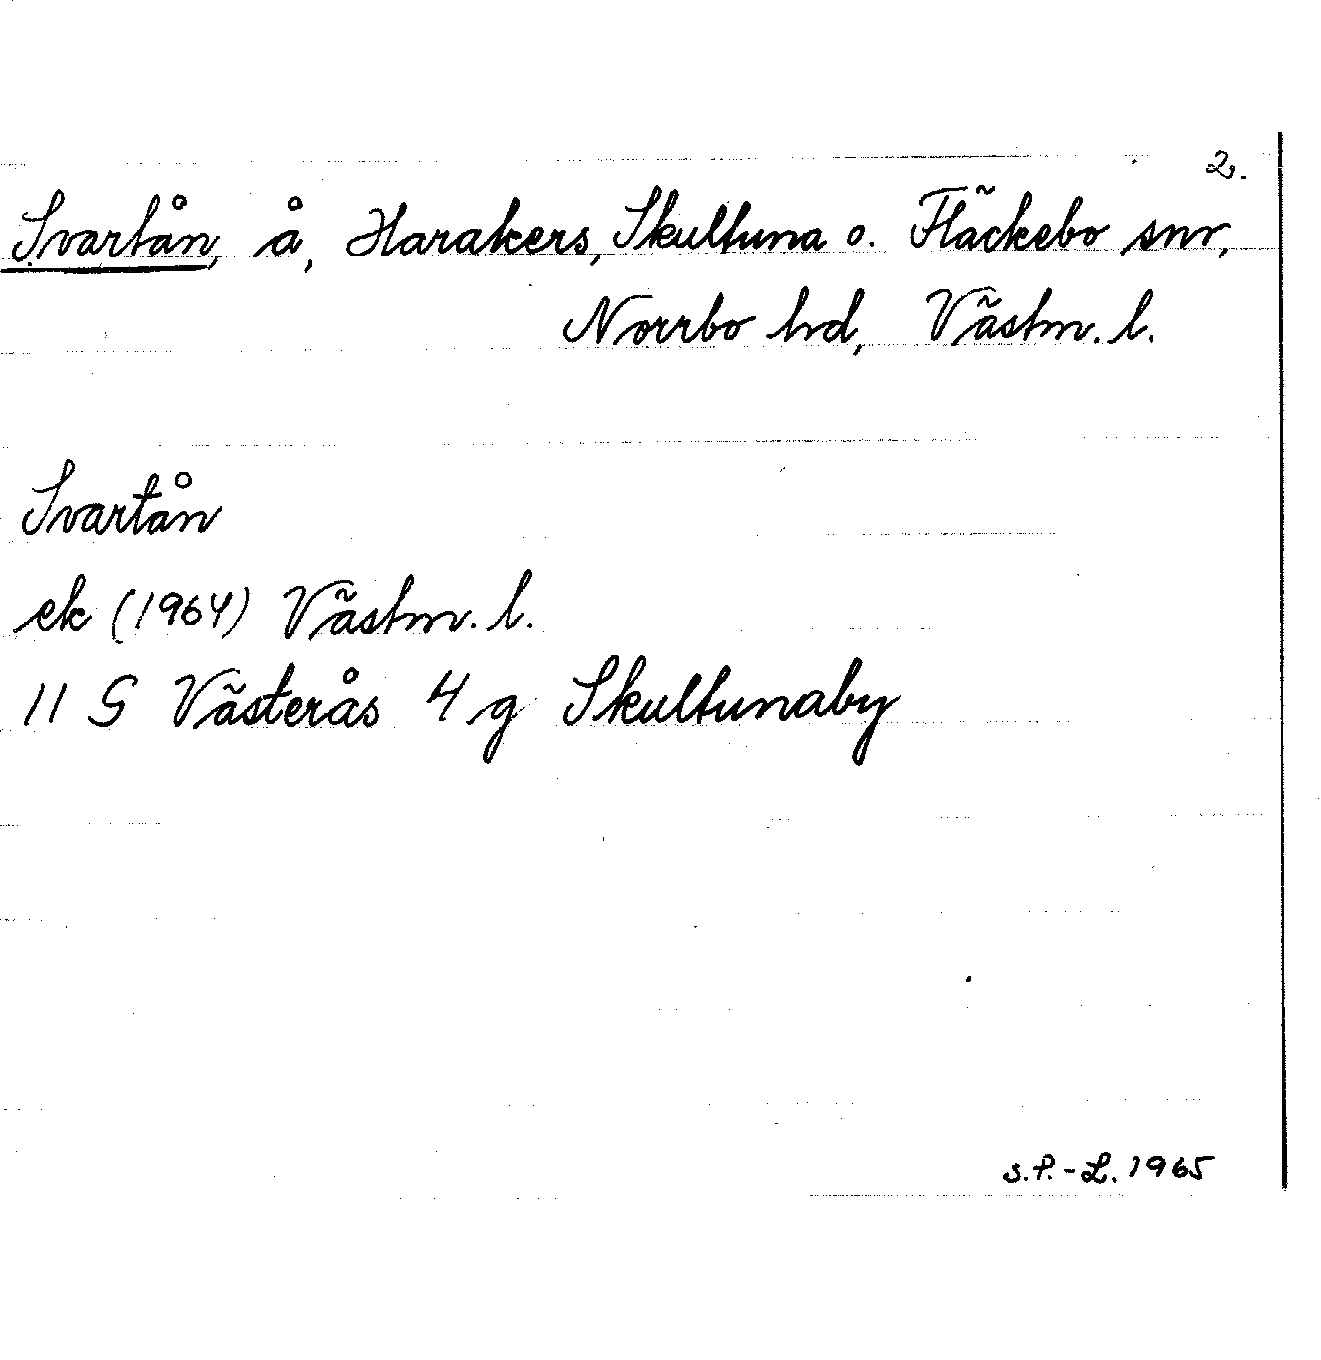 2.
Svartån, å, Harakers, Skultuna o. Fläckebo snr,
Norrbo hd, Västm. l.
Svartån
ek (1964) Västm. l.
11 G Västerås 4 g Skultunaby
S.P.-L. 1965